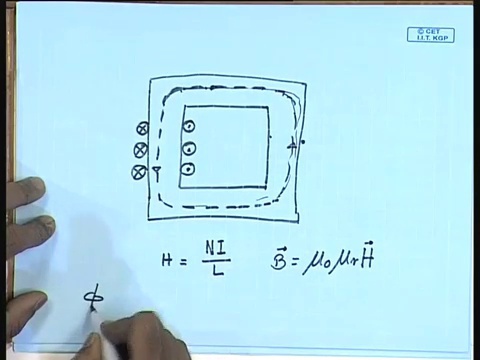 © CET
I.I.T. KGP
H = NI / L    B⃗ = μ₀ μr H⃗
φ